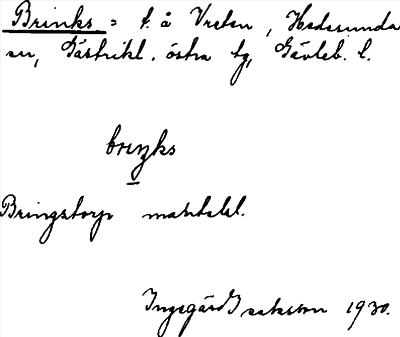 Brinks = t. å Vreten, Hedesunda
sn, Gästrikl. östra tg, Gävleb. l.
brıŋks
Bringstorp mantalsl.
Ingegärd Isaksson 1930.